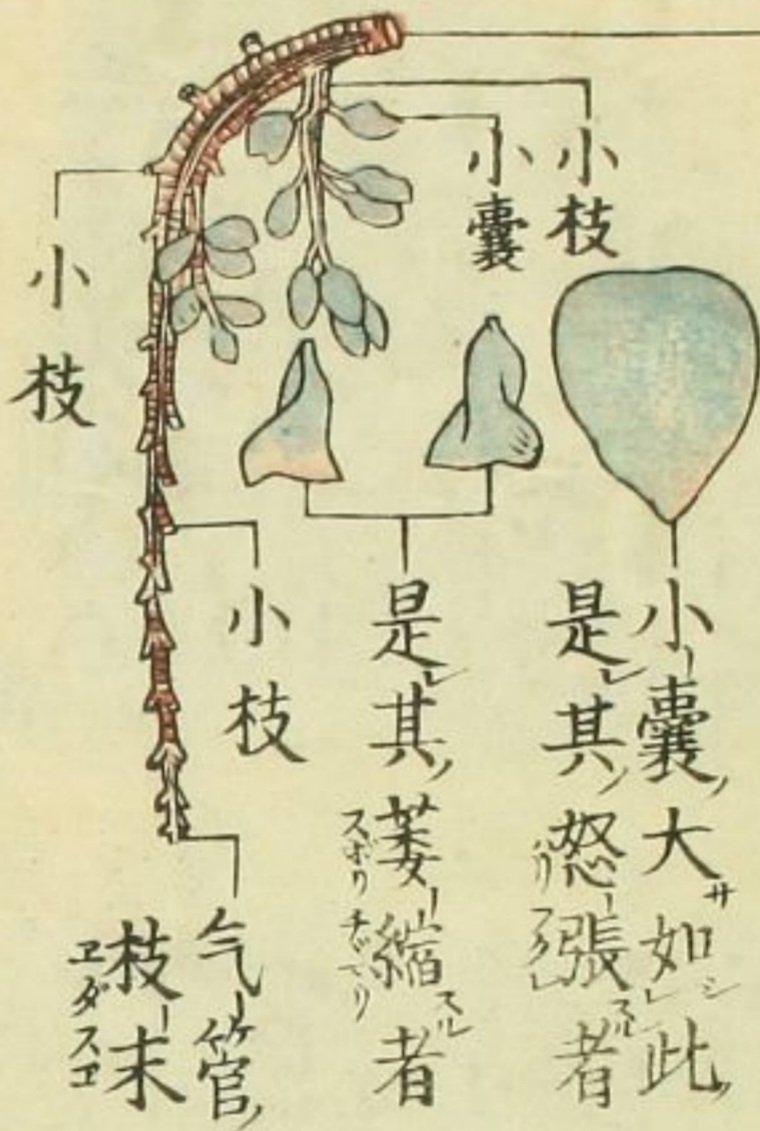 小枝
小囊
小枝
小囊ノ大サ如シレ此ノ
是レ其ノ怒張スル者
ハリフクレ
是レ其ノ萎縮スル者
スボリチヾマリ
小枝
气管ノ
枝末
ヱダスヱ